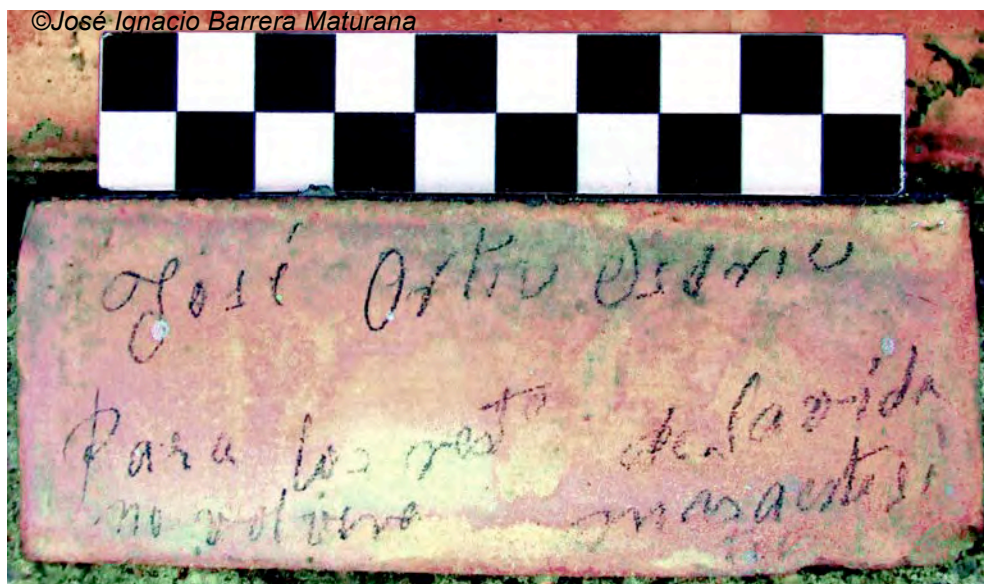 ©José Ignacio Barrera Maturana
José
Para los resto de la vida
no volvere mas a este